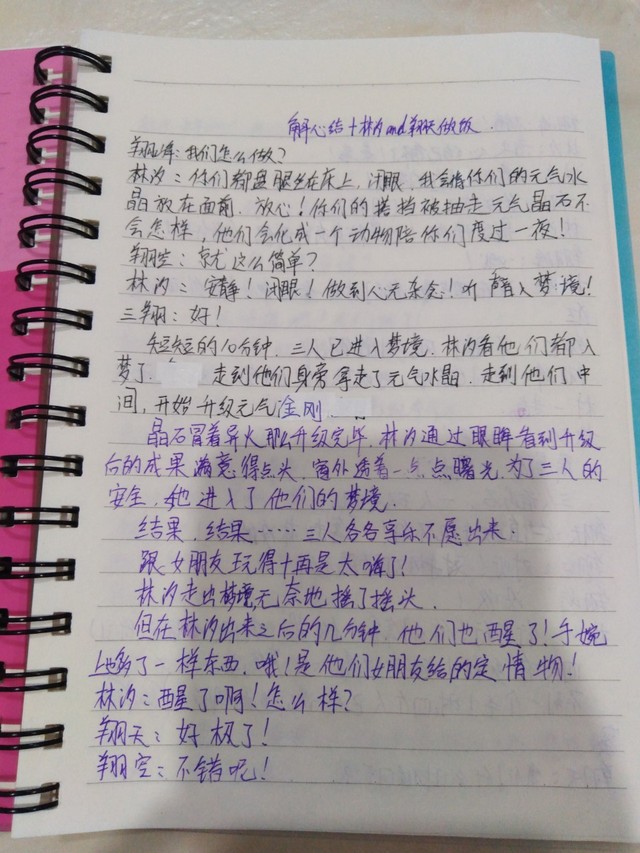 解心结+林汐and翔天做饭.
翔峰:我们怎么做?
林汐:你们都盘腿坐在床上,闭眼.我会借你们的元气水
晶放在面前.放心!你们的搭挡被抽走元气晶石不
会怎样,他们会化成一个动物陪你们度过一夜!
翔空:就这么简单?
林汐:安静!闭眼!做到心无杂念!听声音入梦境!
三翔:好!
短短的10分钟.三人已进入梦境.林汐看他们都入
梦了.走到他们身旁拿走了元气水晶.走到他们中
间,开始升级元气金刚.
晶石冒着异火那么升级完毕.林汐通过眼眸看到升级
后的成果满意得点头,窗外透着一点点曙光,为了三人的
安全,她进入了他们的梦境.
结果,结果……三人各各享乐不愿出来.
跟女朋友玩得十再是太嗨了!
林汐走出梦境无奈地摇了摇头.
但在林汐出来之后的几分钟.他们也醒了!手婉
上多了一样东西.哦!是他们女朋友给的定情物!
林汐:醒了啊!怎么样?
翔天:好极了!
翔空:不错呢!